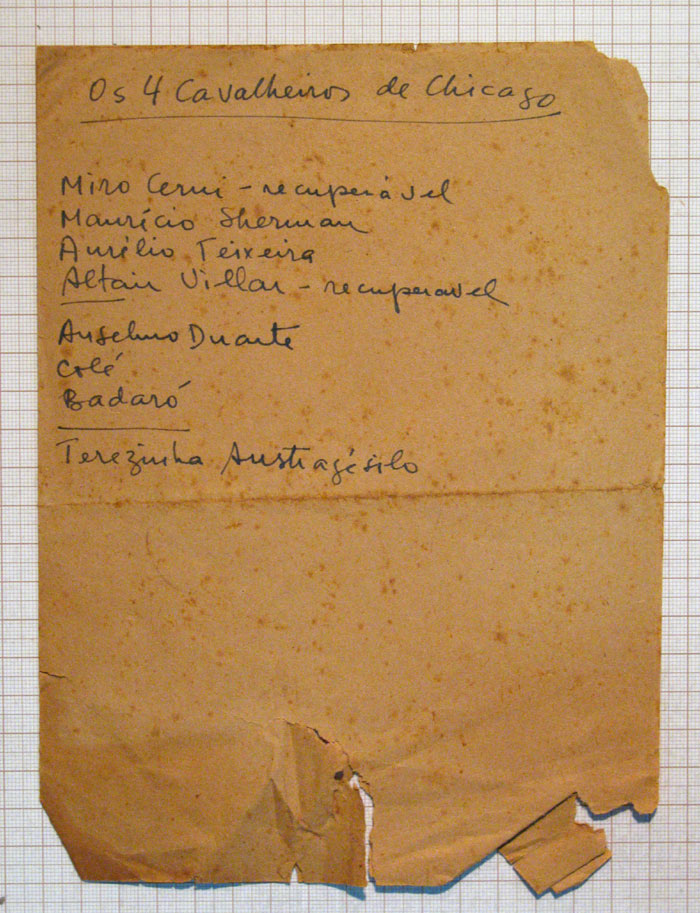 Os 4 Cavalheiros de Chicago
Miro Cerni - recuperável
Maurício Sherman
Aurélio Teixeira
Altair Villar - recuperavel
Anselmo Duarte
Colé
Badaró
Terezinha Austragésilo